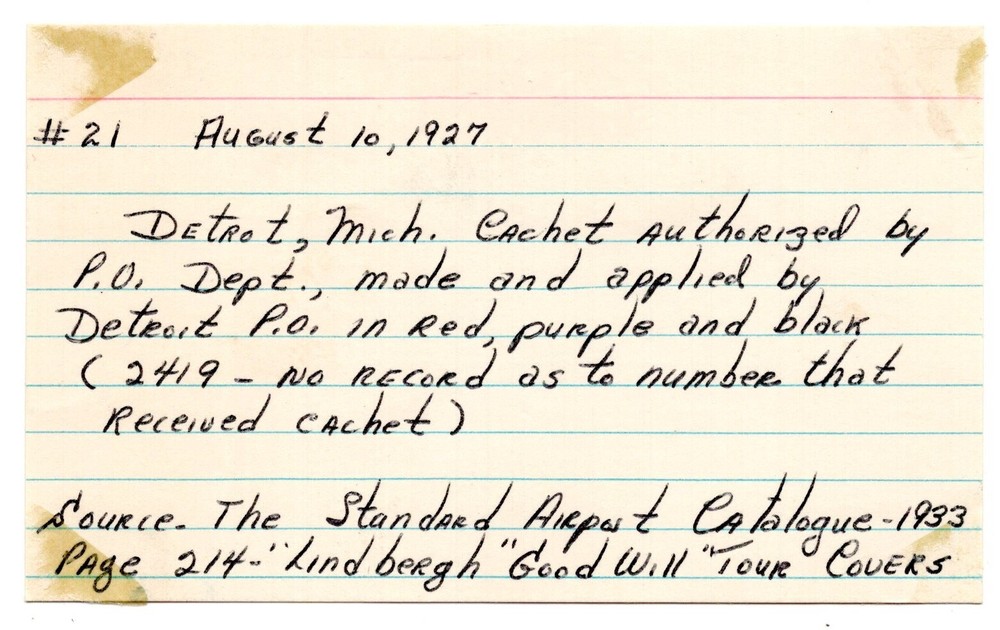 #21 August 10, 1927
Detrot, Mich. Cachet authorized by
P.O. Dept., made and applied by
Detroit P.O. in Red, purple and black
(2419 - no record as to number that
Received cachet)
Source - The Standard Airport Catalogue - 1933
Page 214 - "Lindbergh "Good Will "Tour Covers